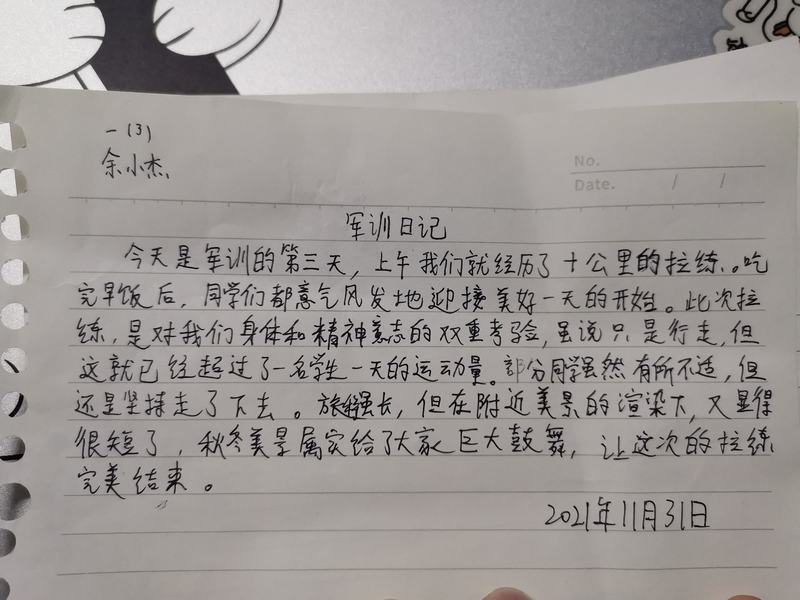 一(3)
余小杰
No.
Date. / /
军训日记
今天是军训的第三天，上午我们就经历了十公里的拉练。吃
完早饭后，同学们都意气风发地迎接美好一天的开始。此次拉
练，是对我们身体和精神意志的双重考验，虽说只是行走，但
这就已经超过了一名学生一天的运动量。部分同学虽然有所不适，但
还是坚持走了下去。旅程虽长，但在附近美景的渲染下，又显得
很短了，秋冬美景属实给了大家巨大鼓舞，让这次的拉练
完美结束。
2021年11月31日